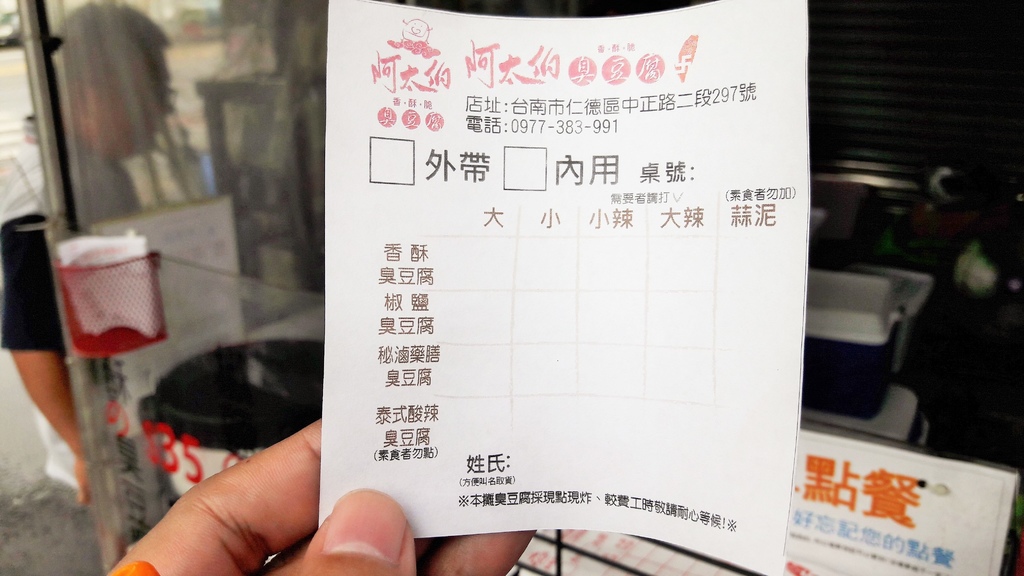 阿太伯
香·酥·脆
臭豆腐
阿太伯 臭豆腐
香·酥·脆
店址:台南市仁德區中正路二段297號
電話:0977-383-991
外帶 內用 桌號:
需要者請打∨
(素食者勿加)
大 小 小辣 大辣 蒜泥
香酥
臭豆腐
椒鹽
臭豆腐
秘滷藥膳
臭豆腐
泰式酸辣
臭豆腐
(素食者勿點)
姓氏:
(方便叫名取貨)
※本攤臭豆腐採現點現炸、較費工時敬請耐心等候!※
點餐
好忘記您的點餐
35